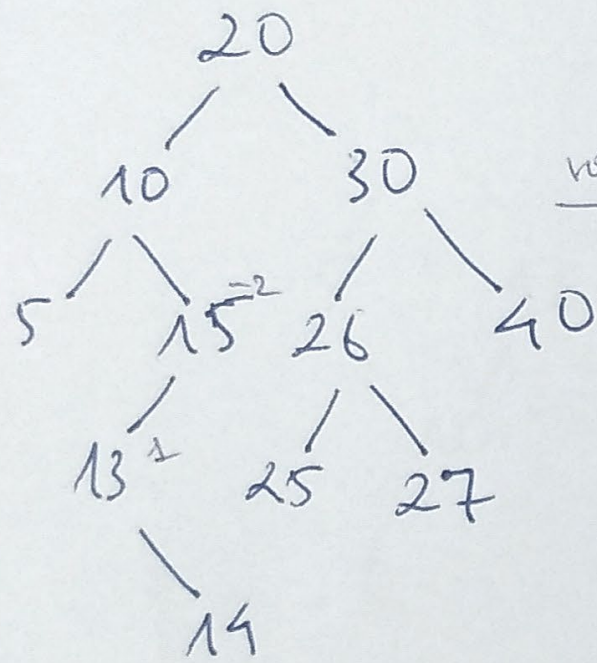 20
10 30
5 15 -2 26 40
13 1 25 27
14